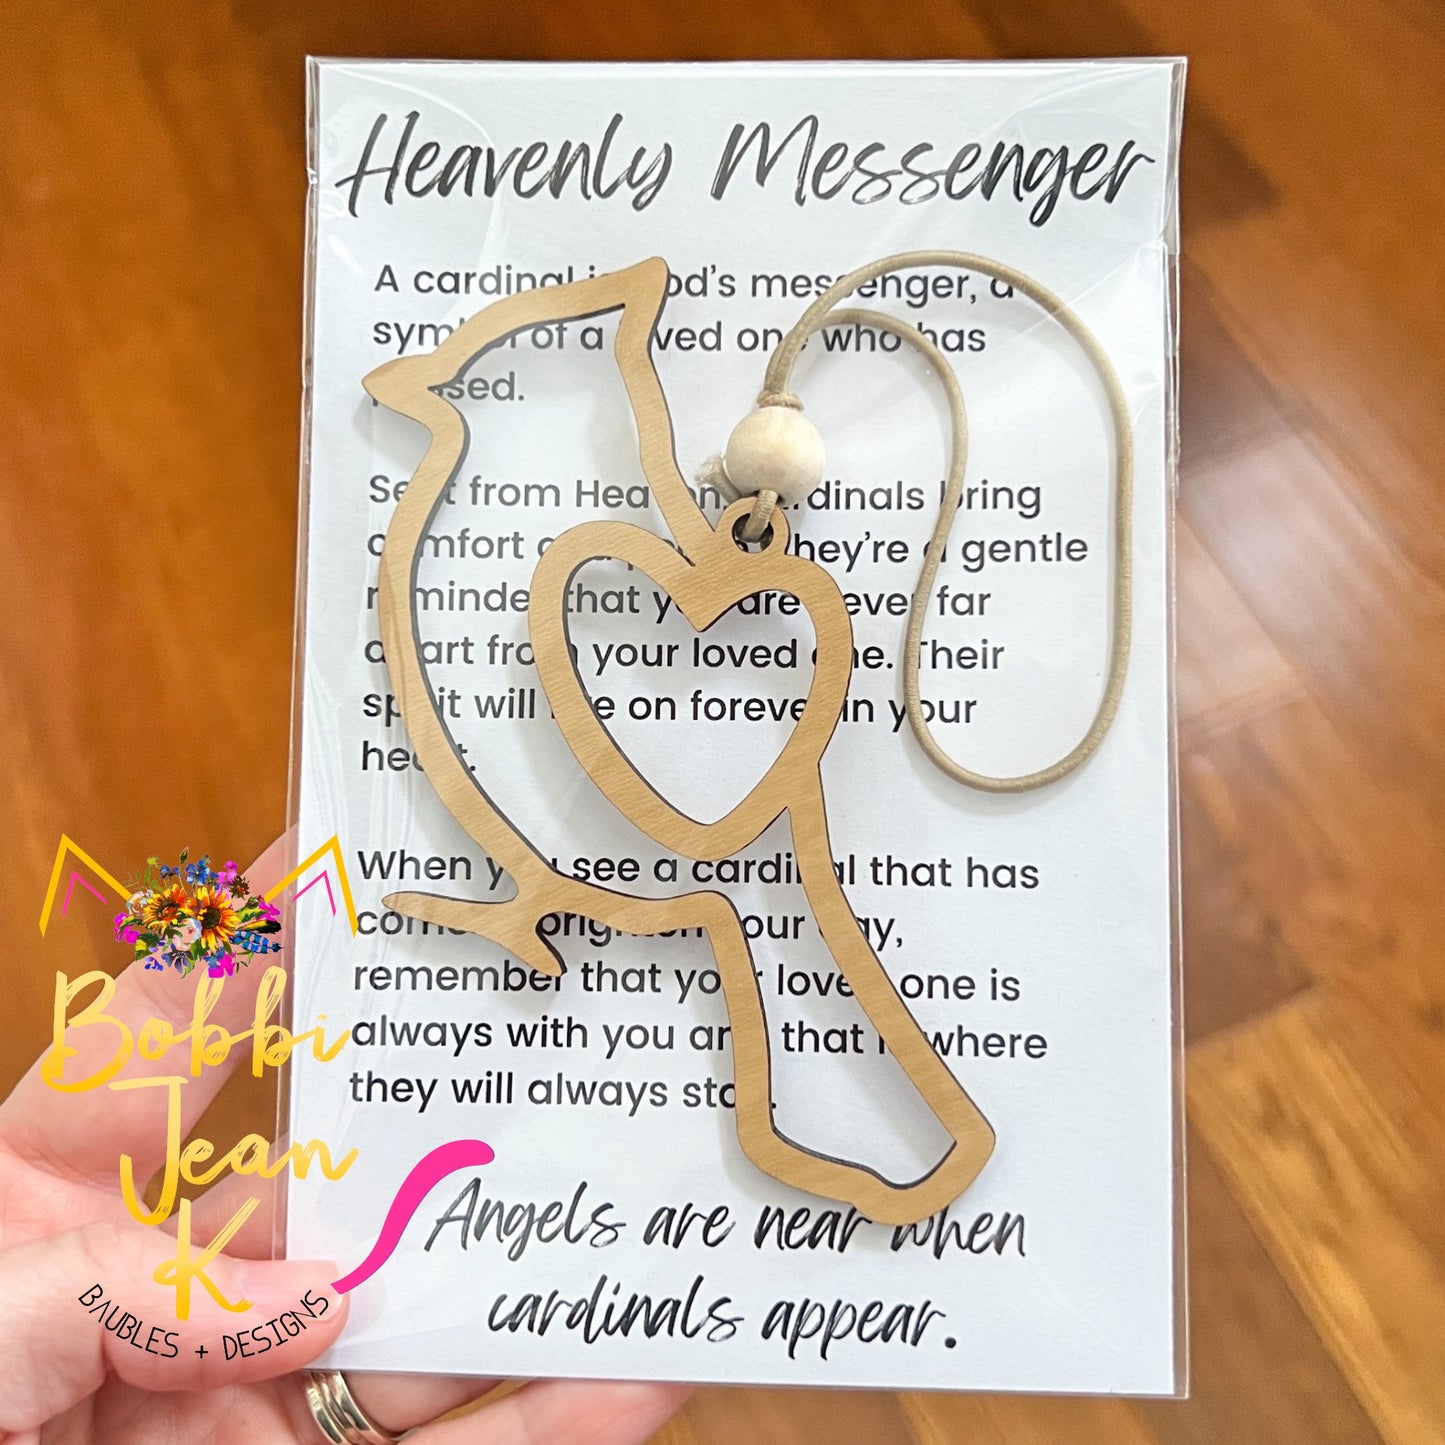 Heavenly Messenger
A cardinal is God's messenger, a
symbol of a loved one who has
passed.
Sent from Heaven, cardinals bring
comfort and They're a gentle
reminder that you are never far
apart from your loved one. Their
spirit will live on forever in your
heart.
When you see a cardinal that has
come to brighten your day,
remember that your loved one is
always with you and that is where
they will always stay.
Angels are near when
cardinals appear.
Bobbi
Jean
K
BAUBLES + DESIGNS